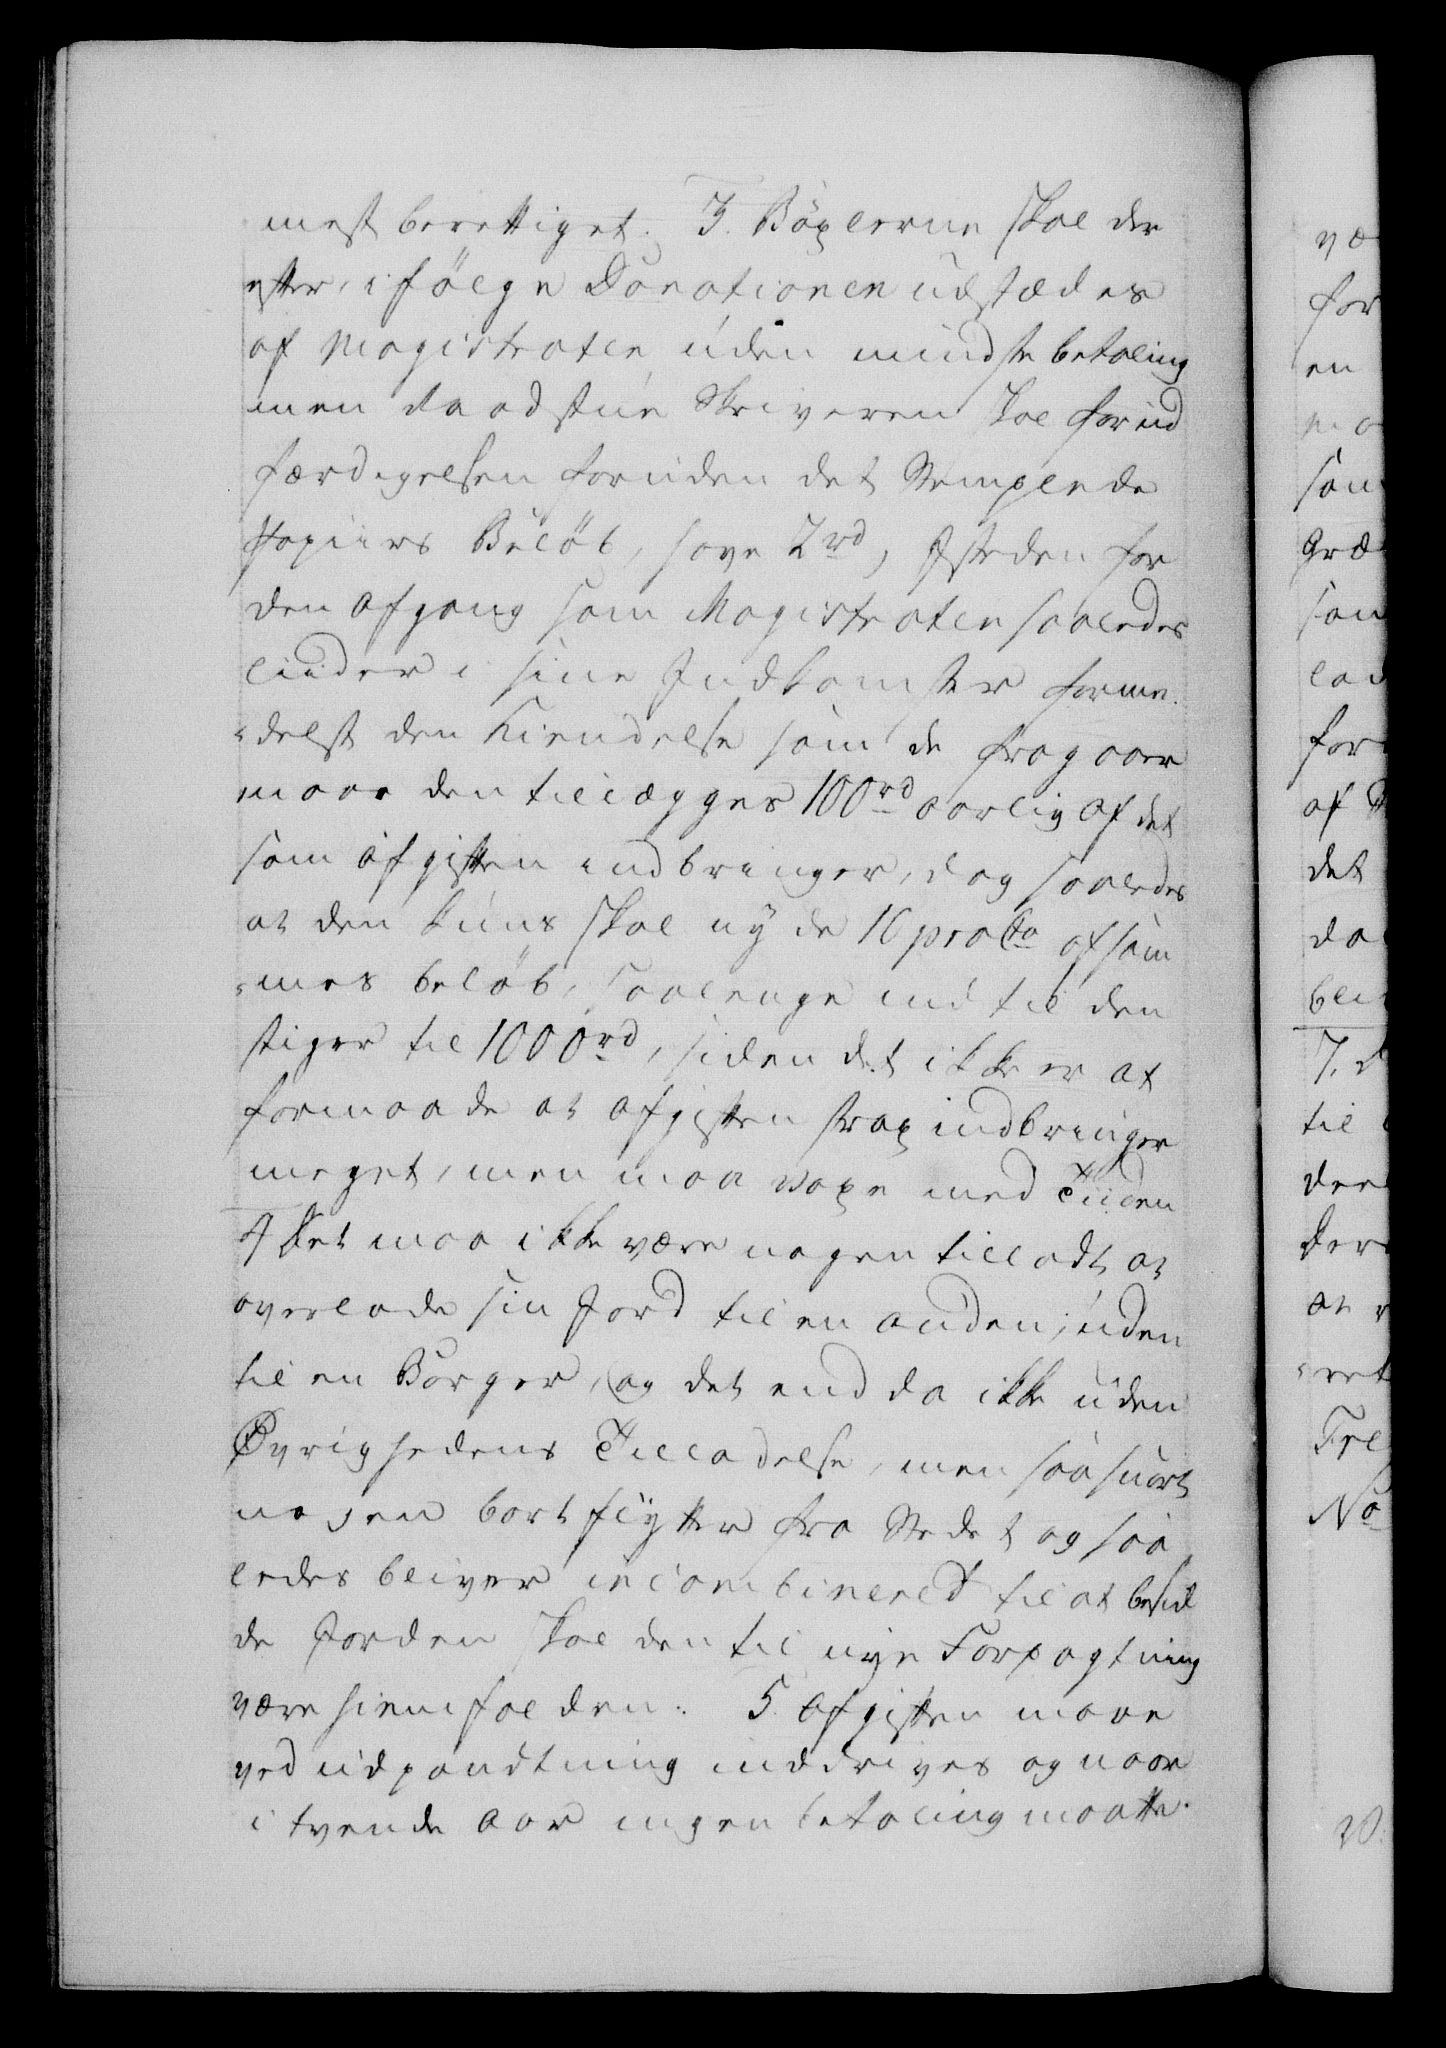 mest berettiget. 3. Böxlerne skal der
efter, i fölge Donationen udstædes
af Magistraten uden mindste betaling
men Raadstue Skriveren skal for ud
færdigelsen foruden det Stemplede
Papiirs Belöb, have 2rd, Isteden for
den Afgang som Magistraten saaledes
liider i sine Indkomster forme
delst den Kiendelse som de fragaaer
maae den tillægges 100rd aarlig af det
som Afgiften indbringer, dog saaledes
at den kuns skal nyde 10 pro Cto af sam
mes beløb, saalænge indtil den
stiger til 1000rd, siden det ikke er at
formaade at Afgiften strax indbringer
meget, men maa voxe med Tiiden
4 Det maa ikke være nogen tilladt at
overlade sin Jord til en anden, uden
til en Borger, og det end da ikke uden
Øvrighedens Tilladelse, men saa snart
nogen bortflytter fra Stedet og saa
ledes bliver incombinered til at besid
de Jorden skal den til nye Forpagtning
være hiemfalden. 5. Afgiften maae
ved udpandtning inddrives og naar
i tvende Aar ingen betaling maatte
væ
for
en
som
Græ
som
af
det
7. d
til
Der
at
ret